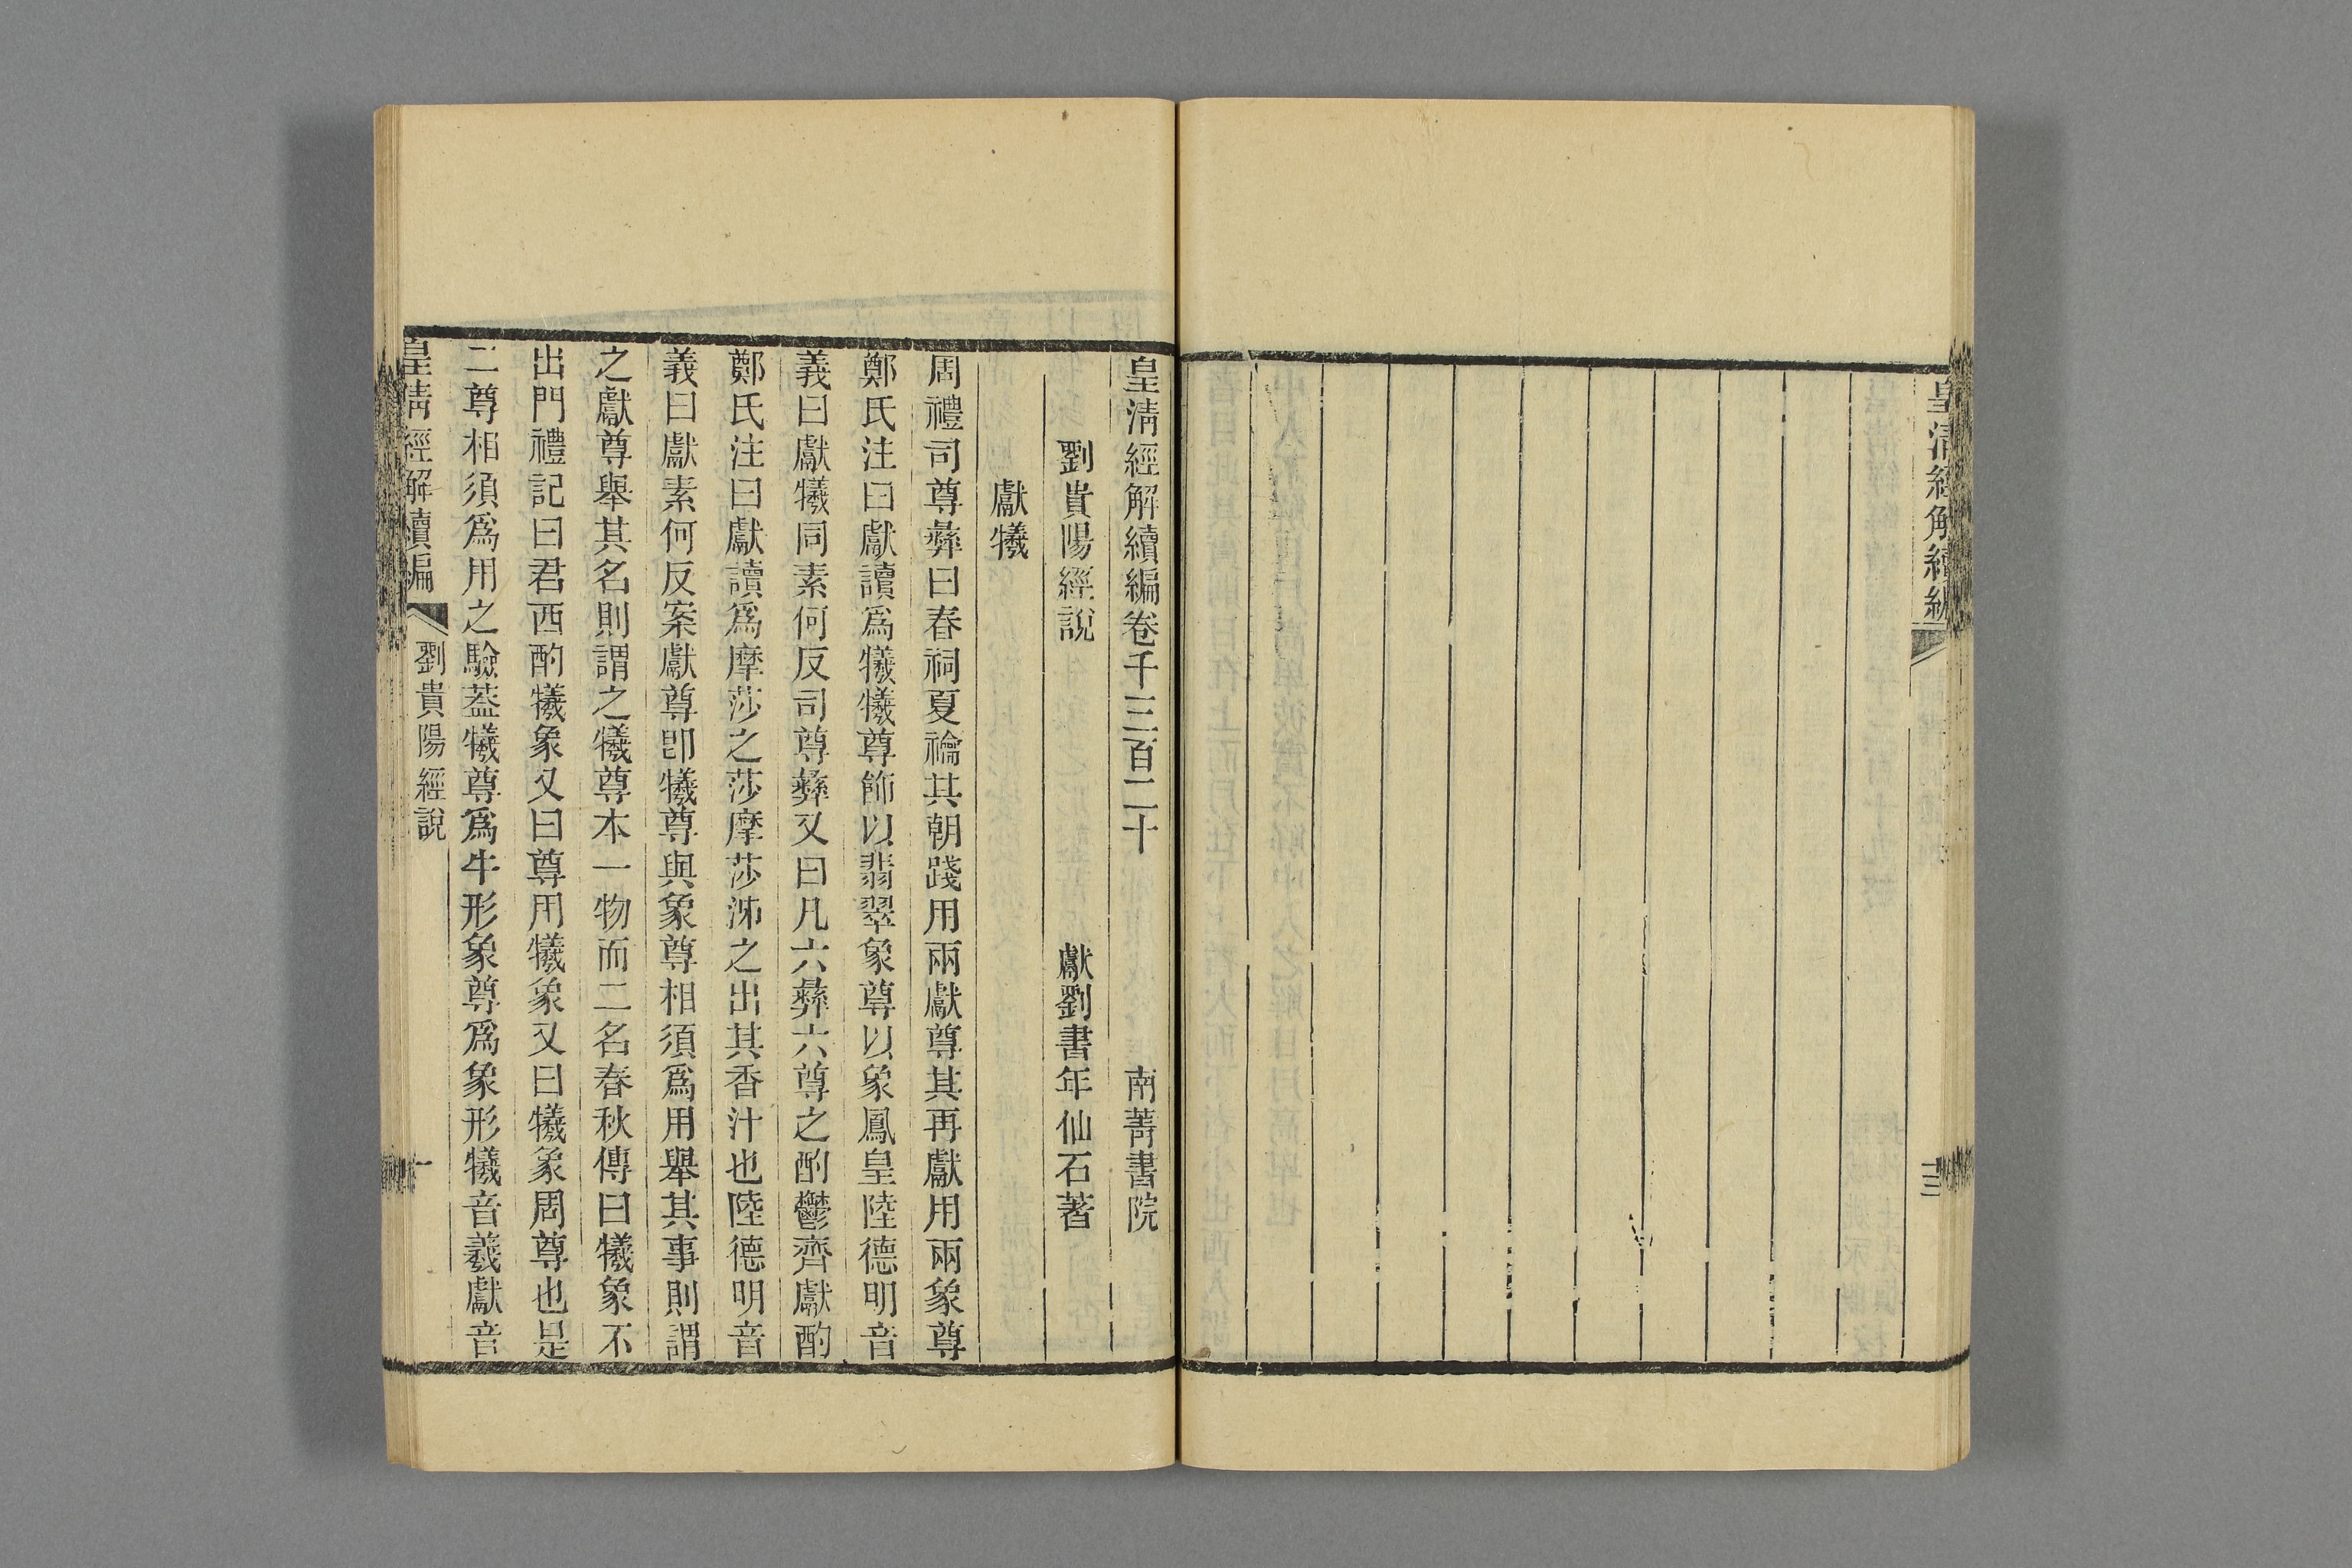 皇清經解續編
十三
皇清經解續編卷千三百二十 南菁書院
劉貴陽經說 獻劉書年仙石著
獻犧
周禮司尊彝曰春祠夏禴其朝踐用兩獻尊其再獻用兩象尊
鄭氏注曰獻讀爲犧犧尊飾以翡翠象尊以象鳳皇陸德明音
義曰獻犧同素何反司尊彝又曰凡六彝六尊之酌鬱齊獻酌
鄭氏注曰獻讀爲摩莎之莎摩莎泲之出其香汁也陸德明音
義曰獻素何反案獻尊卽犧尊與象尊相須爲用舉其事則謂
之獻尊舉其名則謂之犧尊本一物而二名春秋傳曰犧象不
出門禮記曰君西酌犧象又曰尊用犧象又曰犧象周尊也是
二尊相須爲用之驗葢犧尊爲牛形象尊爲象形犧音羲獻音
皇清經解續編 劉貴陽經說 一